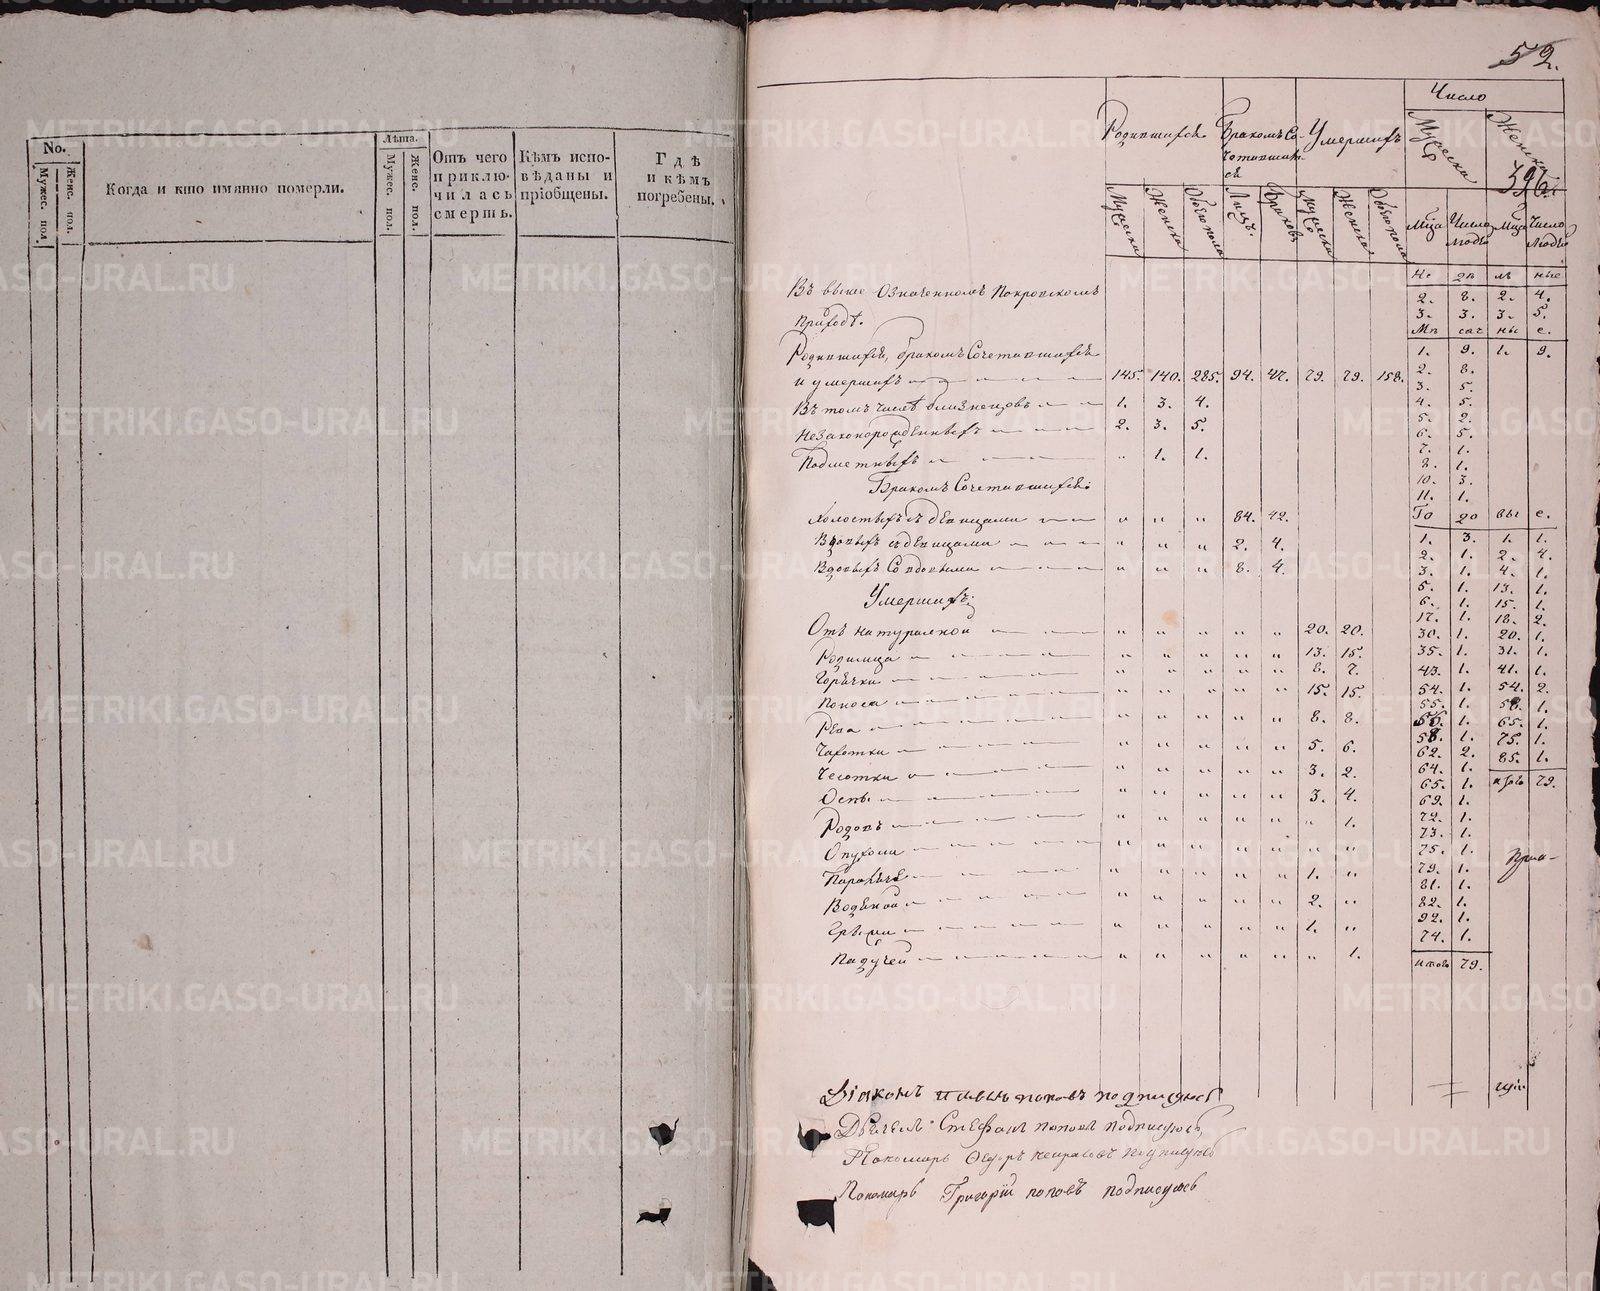 No.
Мужес. пол.
Женс. пол.
Когда и кто имянно померли.
Лѣта.
Мужес. пол.
Женс. пол.
Отъ чего
приклю-
чилась
смерть.
Кѣмъ испо-
вѣданы и
пріобщены.
Гдѣ
и кѣмъ
погребены.
52.
Число
Родившихся
Бракомъ Со-
четавших-
ся
Умершихъ
Мужеска
Женска
326.
Мужеска
Женска
Обоего пола
Лицъ.
Браковъ
Мужеска
Женска
Обоего пола
Мца
Число людъ
Мца
Число людъ
Не дѣ ль ные
2. 8. 2. 4.
3. 3. 3. 5.
Мѣ сяч ны е.
1. 9. 1. 9.
2. 8.
3. 5.
4. 5.
5. 2.
6. 5.
7. 1.
8. 1.
10. 3.
11. 1.
Го до вы е.
1. 3. 1. 1.
2. 1. 2. 4.
3. 1. 4. 1.
5. 1. 13. 1.
6. 1. 15. 1.
17. 1. 18. 2.
30. 1. 20. 1.
35. 1. 31. 1.
43. 1. 41. 1.
54. 1. 54. 2.
55. 1. 58. 1.
56. 1. 65. 1.
58. 1. 75. 1.
62. 2. 85. 1.
64. 1.
65. 1. итого 79.
69. 1.
72. 1.
73. 1.
75. 1.
79. 1.
81. 1.
82. 1.
92. 1.
74. 1.
итого 79.
Въ выше Означенномъ Покровскомъ
приходѣ.
Родившихся, бракомъ Сочетавшихся
и умершихъ 145. 140. 285. 94. 47. 79. 79. 158.
Въ томъ числѣ близнецовъ 1. 3. 4.
Незаконорожденныхъ 2. 3. 5.
Подметныхъ " 1. 1.
Бракомъ Сочетавшихся:
Холостыхъ съ дѣвицами " " " 84. 42.
Вдовыхъ съ дѣвицами " " " 2. 4.
Вдовыхъ Со вдовыми " " " 8. 4.
Умершихъ:
Отъ натуралной " " " " " 20. 20.
Родимца " " " " " 13. 15.
Горячки " " " " " 8. 7.
Поноса " " " " " 15. 15.
Рева " " " " " 8. 8.
Чахотки " " " " " 5. 6.
Чесотки " " " " " 3. 2.
Оспы " " " " " 3. 4.
Родовъ " " " " " " 1.
Опухоли " " " " " " "
Параличѣ " " " " " 1. "
Водяной " " " " " 2. "
Грыжи " " " " " 1. "
Падучей " " " " " " 1.
Діаконъ поповъ подписуюсь
Дьячекъ Стефанъ поповъ подписуюсь,
Пономарь Ѳедоръ подписуюсь
Пономарь Григорій поповъ подписуюсь
METRIKI.GASO-URAL.RU